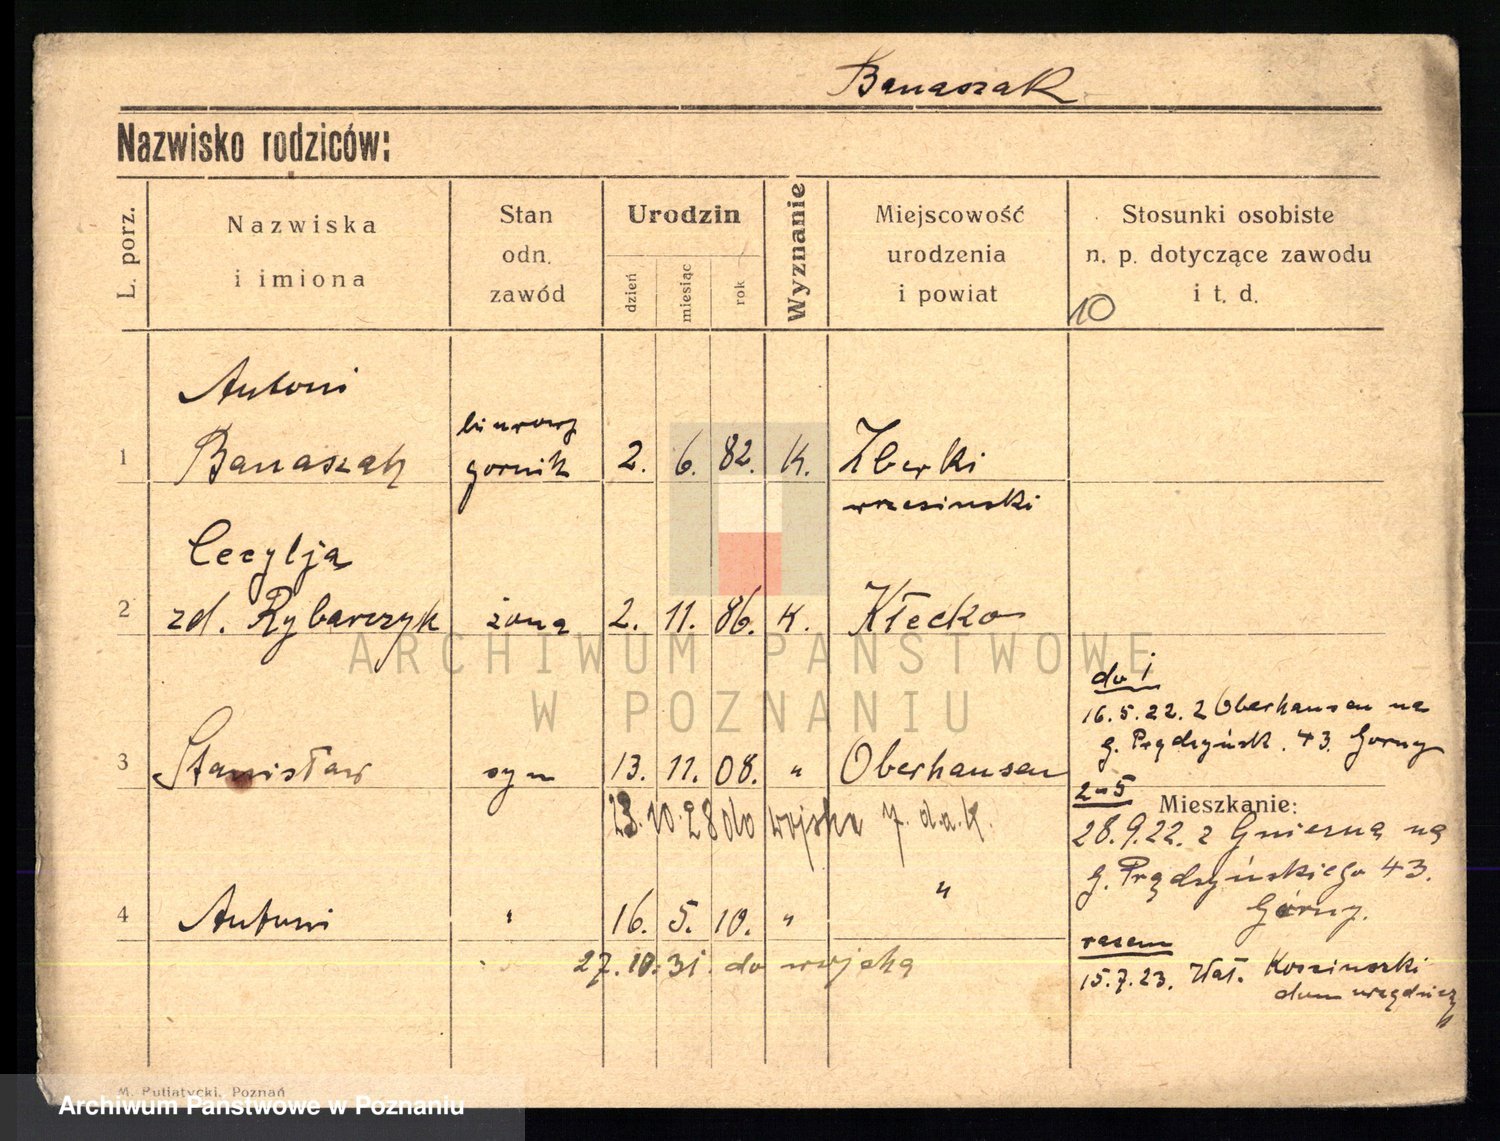 Banaszak
Nazwisko rodziców:
L. porz.
Nazwiska
i imiona
Stan
odn.
zawód
Urodzin
dzień
miesiąc
rok
Wyznanie
Miejscowość
urodzenia
i powiat
Stosunki osobiste
n. p. dotyczące zawodu
i t. d.
10
Antoni
1 Banaszak biurowy górnik 2. 6. 82. K. Zberki
wrzesiński
Cecylja
2 zd. Rybarczyk żona 2. 11. 86. K. Kłecko
do 1
16.5.22. z Oberhausen na
g. Prądzyńsk. 43. Górny
3 Stanisław syn 13. 11. 08. " Oberhausen
2-5
Mieszkanie:
23.10.28 do wojska 7. d.a.k.
28.9.22. z Gniezna na
g. Prądzyńskiego 43.
Górny.
4 Antoni " 16. 5. 10. " "
razem
27.10.31. do wojska
15.7.23. Wał. Kosziuszki
dom urzędniczy
M. Putiatycki, Poznań
ARCHIWUM PAŃSTWOWE
W POZNANIU
Archiwum Państwowe w Poznaniu